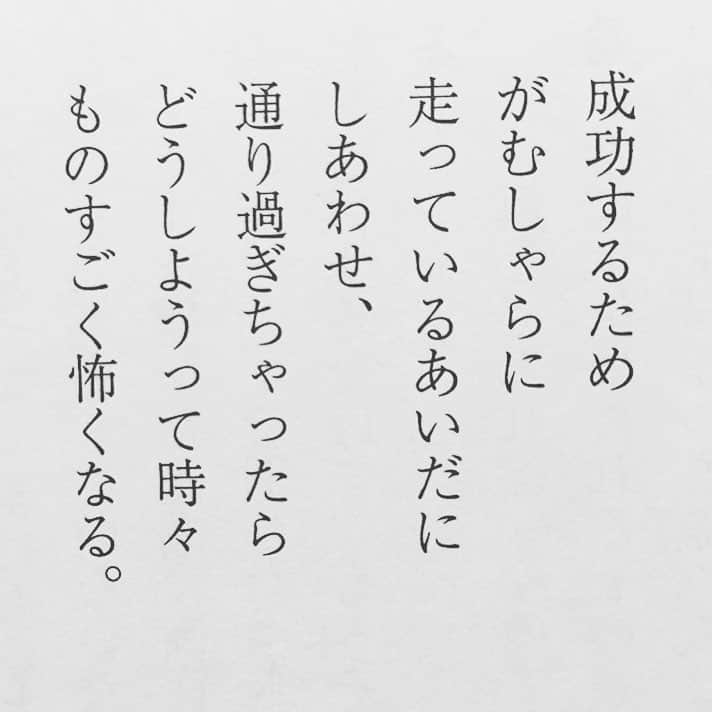 成功するため
がむしゃらに
走っているあいだに
しあわせ、
通り過ぎちゃったら
どうしようって時々
ものすごく怖くなる。